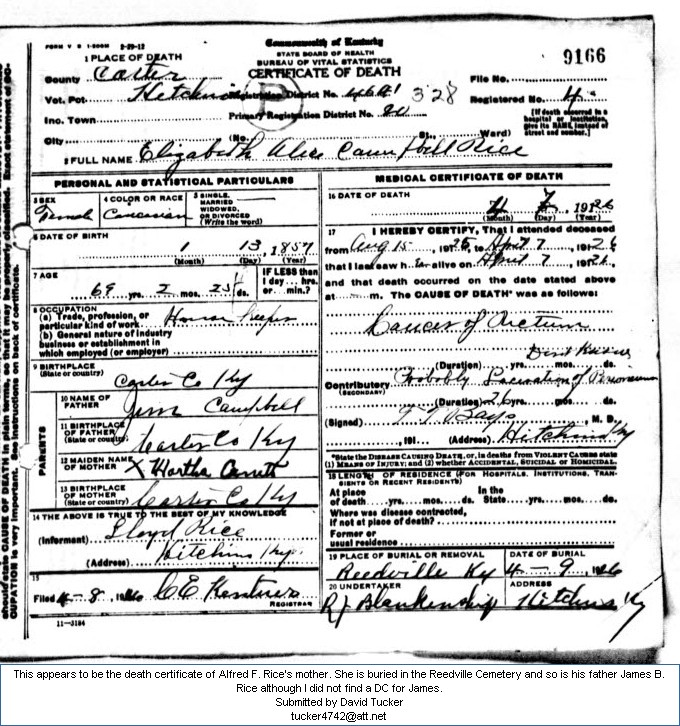 FORM V S 1-500M 2-29-12
Commonwealth of Kentucky
STATE BOARD OF HEALTH
BUREAU OF VITAL STATISTICS
CERTIFICATE OF DEATH
9166
1 PLACE OF DEATH
County Carter
File No.
Vot. Pct. Hitchins Registration District No. 4641 328 Registered No. 4
Inc. Town Primary Registration District No.
[If death occurred in a hospital or institution, give its NAME instead of street and number.]
City (No. St., Ward)
2 FULL NAME Elizabeth Alice Campbell Rice
PERSONAL AND STATISTICAL PARTICULARS
3 SEX Female
4 COLOR OR RACE Caucasian
5 SINGLE, MARRIED WIDOWED, OR DIVORCED (Write the word)
6 DATE OF BIRTH
1 13, 1857
(Month) (Day) (Year)
7 AGE
69 yrs. 2 mos. ds.
IF LESS than 1 day... hrs. or... min.?
8 OCCUPATION
(a) Trade, profession, or particular kind of work House Keeper
(b) General nature of industry business or establishment in which employed (or employer)
9 BIRTHPLACE (State or country) Carter Co Ky
PARENTS
10 NAME OF FATHER Jim Campbell
11 BIRTHPLACE OF FATHER (State or country) Carter Co Ky
12 MAIDEN NAME OF MOTHER X Martha
13 BIRTHPLACE OF MOTHER (State or country) Carter Co Ky
14 THE ABOVE IS TRUE TO THE BEST OF MY KNOWLEDGE
(Informant) Lloyd Rice
(Address) Hitchins Ky.
15
Filed 4-8, 1926 C E
REGISTRAR
11-3184
MEDICAL CERTIFICATE OF DEATH
16 DATE OF DEATH
4 7, 1926
(Month) (Day) (Year)
17 I HEREBY CERTIFY, That I attended deceased
from Aug 15, 1925, to April 7, 1926,
that I last saw her alive on April 7, 1926,
and that death occurred on the date stated above
at m. The CAUSE OF DEATH* was as follows:
Cancer of Rectum
(Duration) yrs. mos. ds.
Contributory (SECONDARY) Probably Laceration of
(Duration) 26 yrs. mos. ds.
(Signed) Bays, M. D.
, 191... (Address) Hitchins Ky
*State the DISEASE CAUSING DEATH, or, in deaths from VIOLENT CAUSES state (1) MEANS OF INJURY; and (2) whether ACCIDENTAL, SUICIDAL or HOMICIDAL.
18 LENGTH OF RESIDENCE (FOR HOSPITALS, INSTITUTIONS, TRANSIENTS OR RECENT RESIDENTS)
At place of death yrs. mos. ds. In the State yrs. mos. ds.
Where was disease contracted, if not at place of death?
Former or usual residence
19 PLACE OF BURIAL OR REMOVAL Reedville Ky
DATE OF BURIAL 4-9, 1926
20 UNDERTAKER R J Blankenship
ADDRESS Hitchins Ky
This appears to be the death certificate of Alfred F. Rice's mother. She is buried in the Reedville Cemetery and so is his father James B.
Rice although I did not find a DC for James.
Submitted by David Tucker
tucker4742@att.net